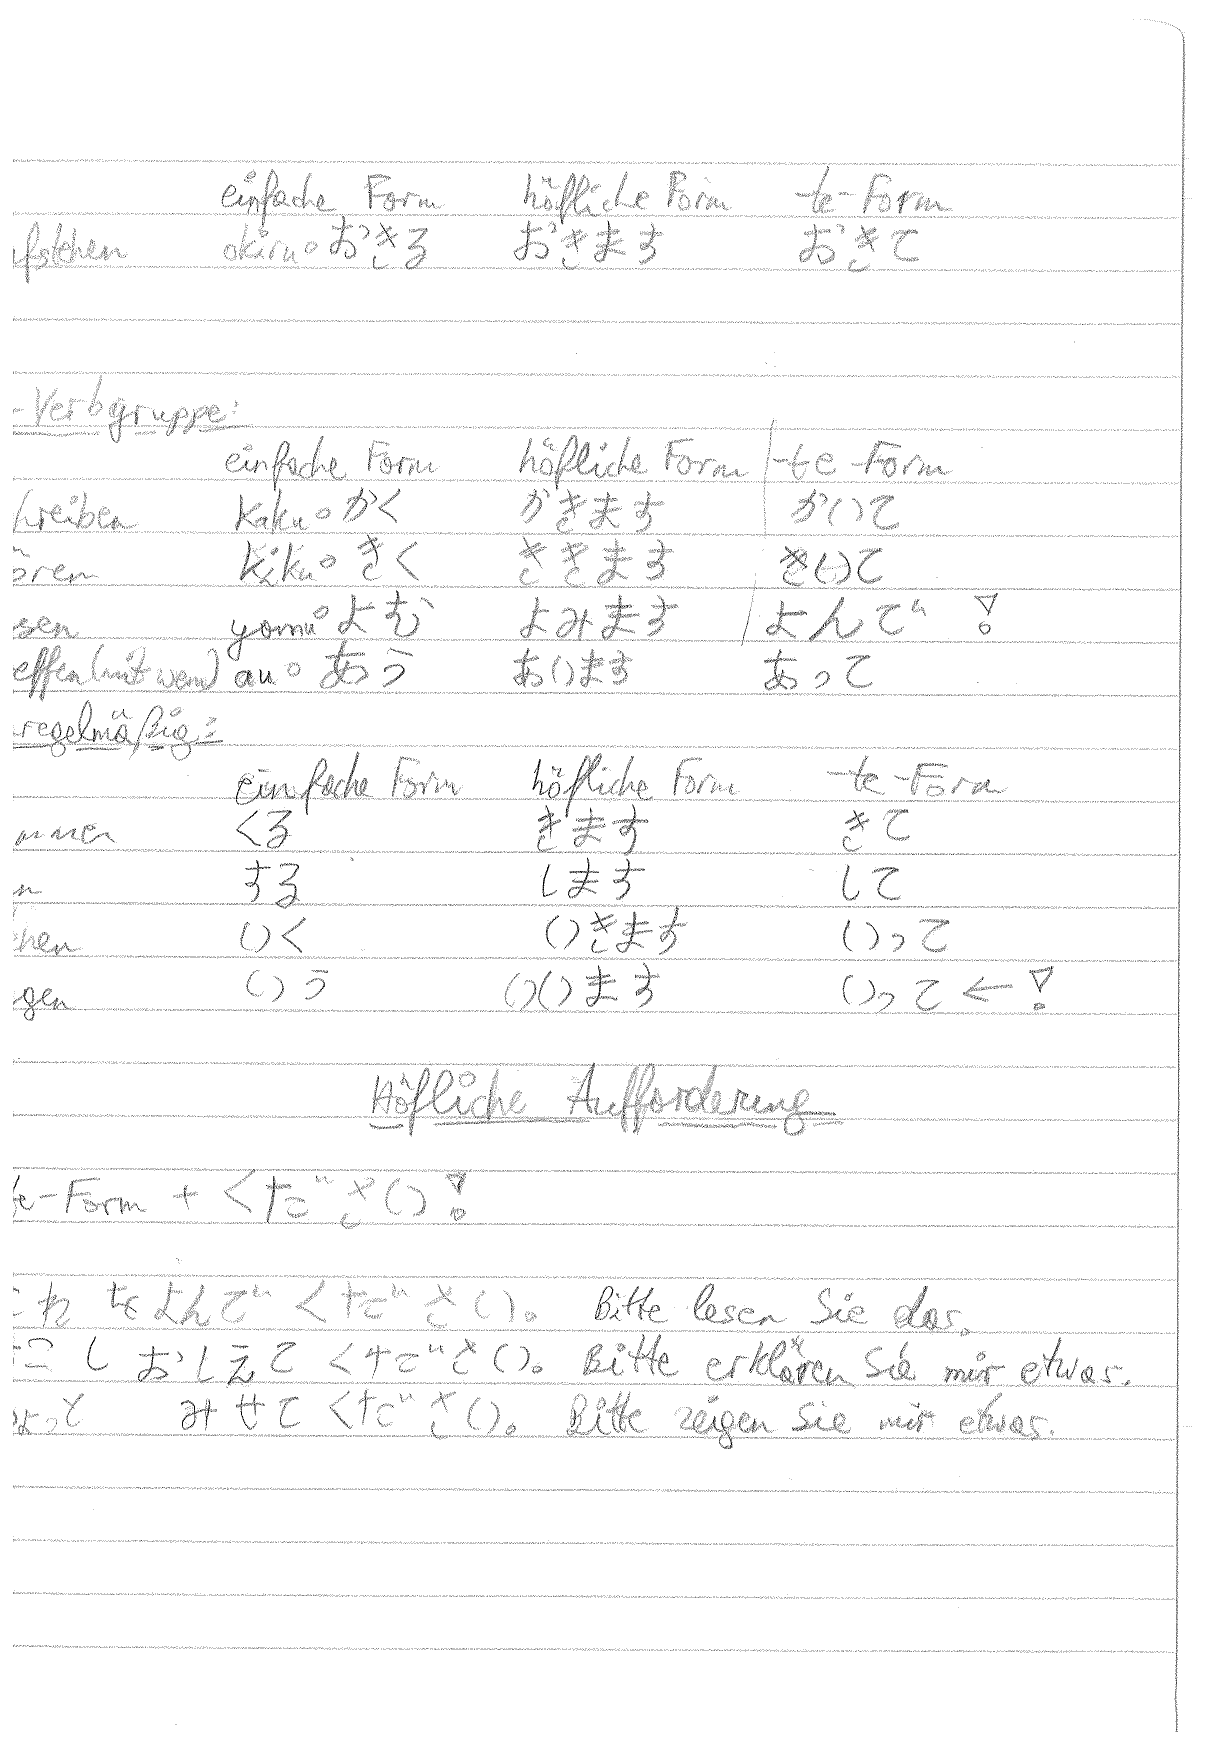 einfache Form höfliche Form -te-Form
ufstehen okiru。おきる おきます おきて
-Verbgruppe:
einfache Form höfliche Form -te-Form
hreiben kaku。かく かきます かいて
ören kiku。きく ききます きいて
sen yomu。よむ よみます よんで !
effen (mit wem) au。あう あいます あって
regelmäßig:
einfache Form höfliche Form -te-Form
ommen くる きます きて
n する します して
ehen いく いきます いって
gen いう いいます いって ← !
Höfliche Aufforderung
te-Form + ください!
これをよんでください。 Bitte lesen Sie das.
しおしえてください。 Bitte erklären Sie mir etwas.
ょっと みせてください。 Bitte zeigen Sie mir etwas.